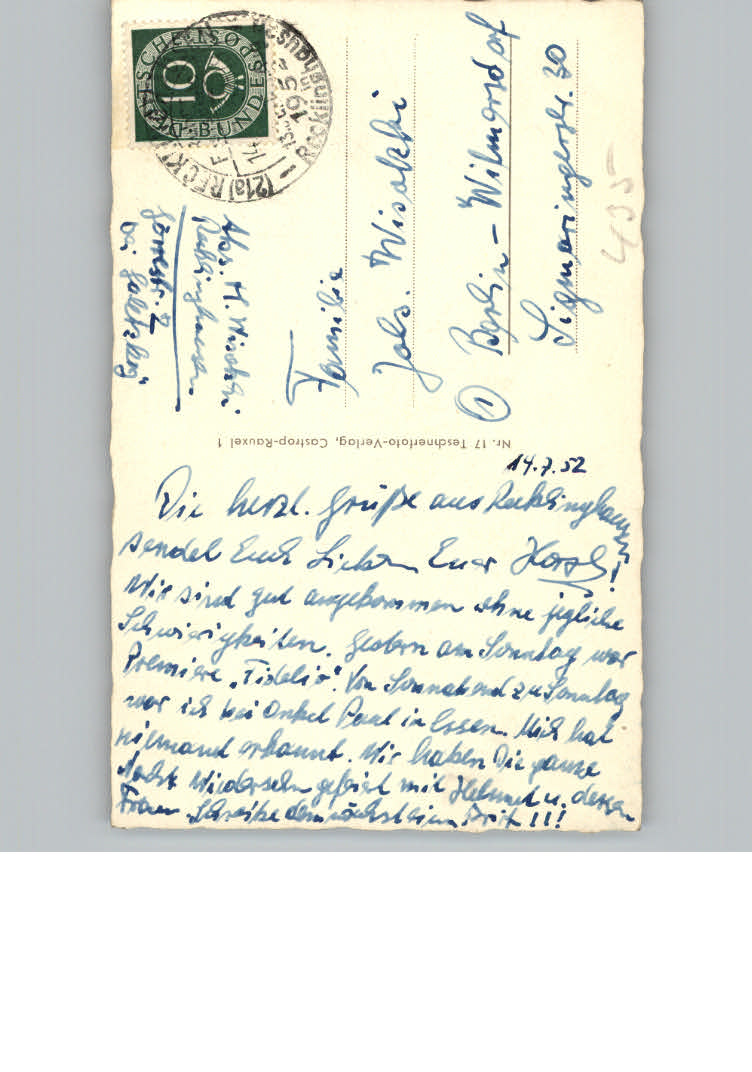 14.7.52
Die herzl. Grüße aus Recklinghausen
sendet Euch Lieben Euer Horst!
Wir sind gut angekommen ohne jegliche
Schwierigkeiten. Gestern am Sonntag war
Premiere „Fidelio“. Von Sonnabend zu Sonntag
war ich bei Onkel Paul in Essen. Mich hat
niemand erkannt. Wir haben Die ganze
Nacht Wiedersehn gefeiert mit Helmut u. dessen
Frau. Schreibe demnächst einen Brief !!!
Nr. 17 Teschnerfoto-Verlag, Castrop-Rauxel 1
Familie
Johs.
① Berlin – Wilmersdorf
Sigmaringerstr. 30
Abs. H.
Recklinghausen
bei
435
10
DEUTSCHE BUNDESPOST
(21a) RECKLINGHAUSEN
Recklinghausen
1952